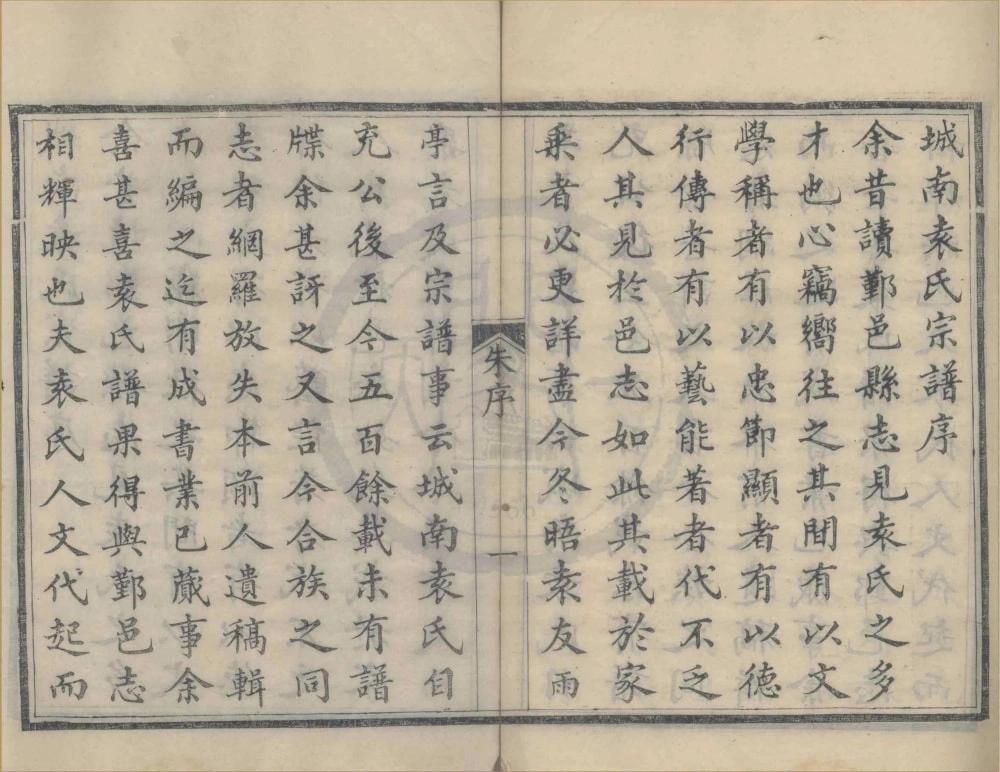 城南袁氏宗譜序
余昔讀鄞邑縣志見袁氏之多
才也心竊嚮往之其間有以文
學稱者有以忠節顯者有以德
行傳者有以藝能著者代不乏
人其見於邑志如此其載於家
乗者必更詳盡今冬晤袁友雨
朱序
一
亭言及宗譜事云城南袁氏自
充公後至今五百餘載未有譜
牒余甚訝之又言今合族之同
志者網羅放失本前人遺稿輯
而編之迄有成書業已蕆事余
喜甚喜袁氏譜果得與鄞邑志
相輝映也夫袁氏人文代起而